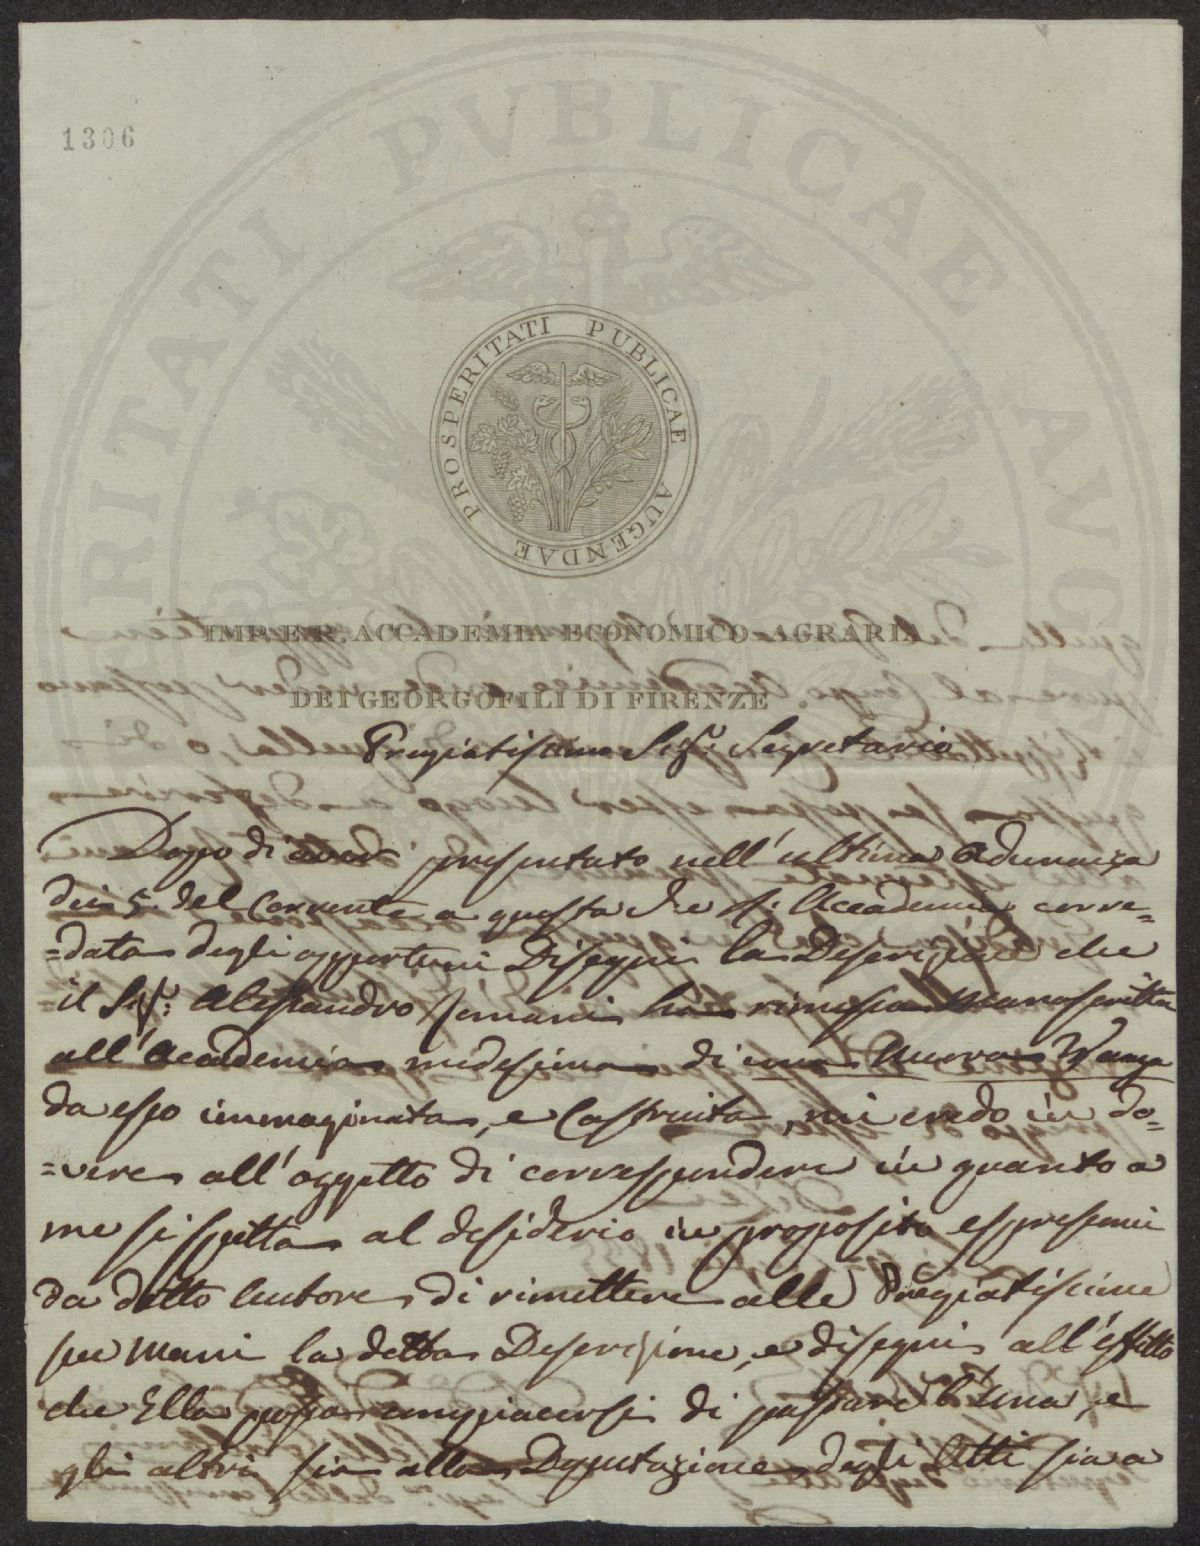 1306
PROSPERITATI PUBLICAE AUGENDAE
IMP. E R. ACCADEMIA ECONOMICO-AGRARIA
DEI GEORGOFILI DI FIRENZE.
Pregiatissimo Sigr. Segretario
Dopo di aver presentato nell'ultima Adunanza
dei 5. del Corrente a questa I. e R. Accademia corre=
=data degli opportuni Disegni la Descrizione che
il Sigr: Alessandro rimessa Manoscritta
all'Accademia medesima di una Nuova Vanga
da esso immaginata, e Costruita, mi credo in do=
=vere all'oggetto di corrispondere in quanto a
me si spetta al desiderio in proposito espressomi
da detto Autore, di rimettere alle Pregiatissime
sue Mani la detta Descrizione, e disegni all'effetto
che Ella possa compiacersi di passare l'una, e
gli altri sia alla Deputazione degli Atti sia a